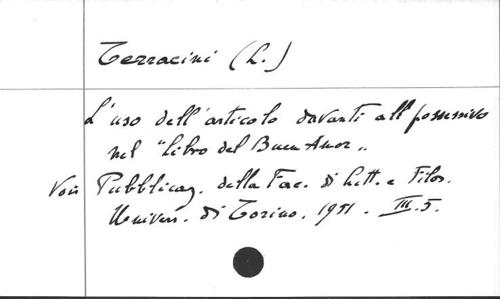 Terracini (L.)
L'uso dell'articolo davanti all possessivo
nel "Libro del Buen Amor„
Voir Pubblicaz. della Fac. di Lett. e Filos.
Univers. di Torino. 1951. III.5.